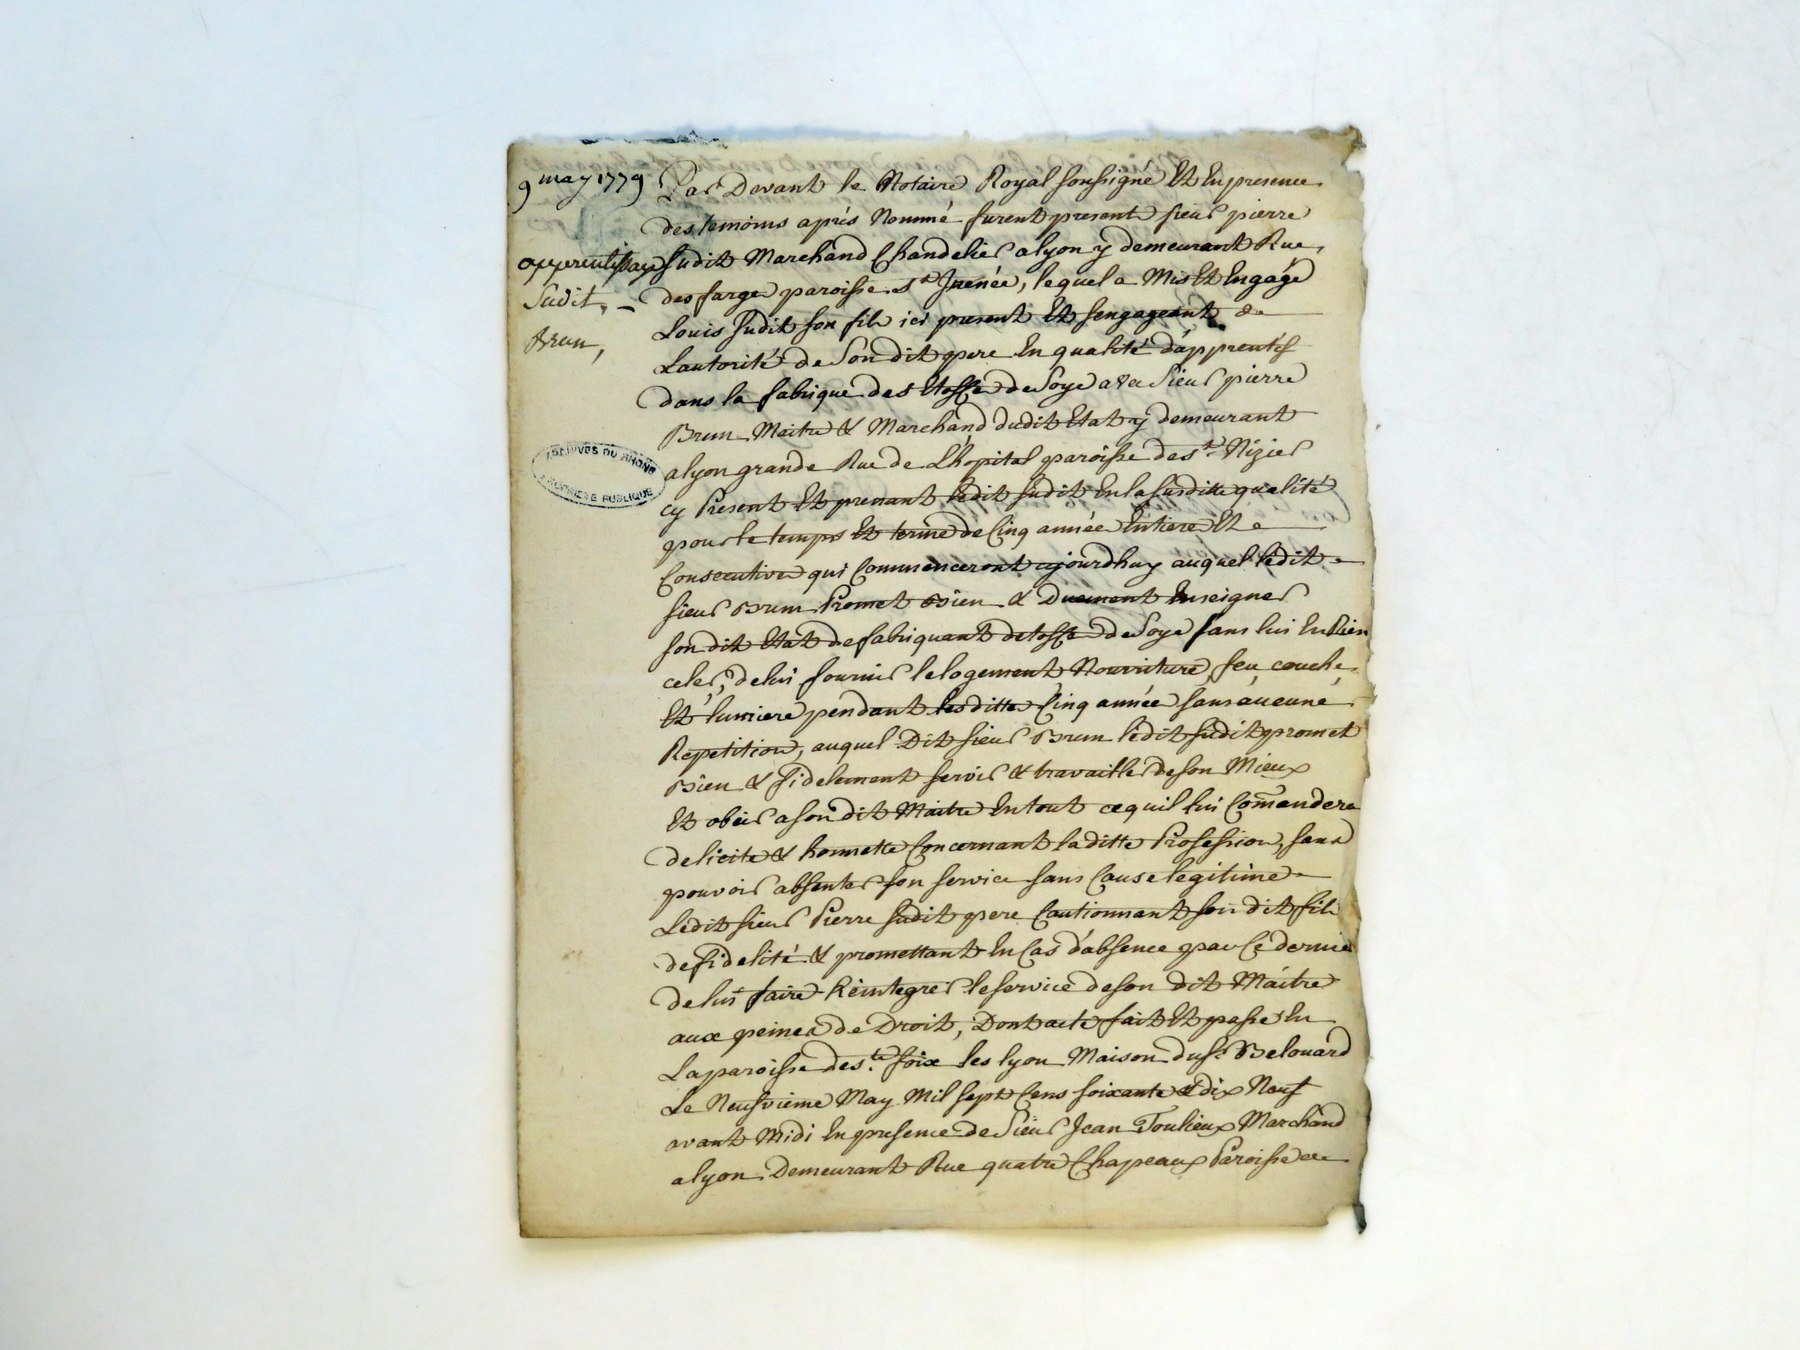 9 may 1779
apprentissage
Judit, –
Brun,
ARCHIVES DU RHONE
PUBLIQUE
Par Devant le Notaire Royal soussigné Et En presence
des temoins aprés Nommé furent present sieur pierre
Judit Marchand Chandelier a lyon y demeurant Rue
des farge paroisse st Irenée, lequel a Mis Et Engagé
Louis Judit son fils ici present Et sengageant de
Lautorité de Son dit pere En qualité d'apprentif
dans la fabrique des Etoffe de Soye avec Sieur pierre
Brun Maitre & Marchand dudit Etat y demeurant
a lyon grande Rue de L'hopital paroisse de st Nizier
cy Present Et prenant ledit Judit En la susditte qualité
pour le temps Et terme de Cinq année Entiere Et
Consecutive qui Commenceront ajourdhuy auquel ledit
sieur Brun Promet Bien & Duement Enseigner
son dit Etat de fabriquant detoffe de Soye sans lui En Rien
celer, de lui fournir le logement Nourriture, feu couche,
Et lumiere pendant les ditte Cinq année sans aucune
Repetition, auquel Dit sieur Brun ledit Judit promet
Bien & fidelement servir & travailler de son Mieux
Et obéir a son dit Maitre En tout ce quil lui Comendera
de licite & honnette Concernant laditte Profession, sans
pouvoir absenter son service sans Cause legitime
Ledit sieur Pierre Judit pere Cautionnant son dit fils
de fidelité & promettant En Cas d'absence par Ce dernier
de lui faire Reintegrer le service de son dit Maitre
aux peines de Droit, Dont acte fait Et passé En
La paroisse de ste foix les lyon Maison du sr Belouard
Le Neufvieme May Mil sept Cens soixante & dix Neuf
avant Midi En presence de Sieur Jean Toulieux Marchand
a lyon Demeurant Rue quatre Chapeaux Paroisse de